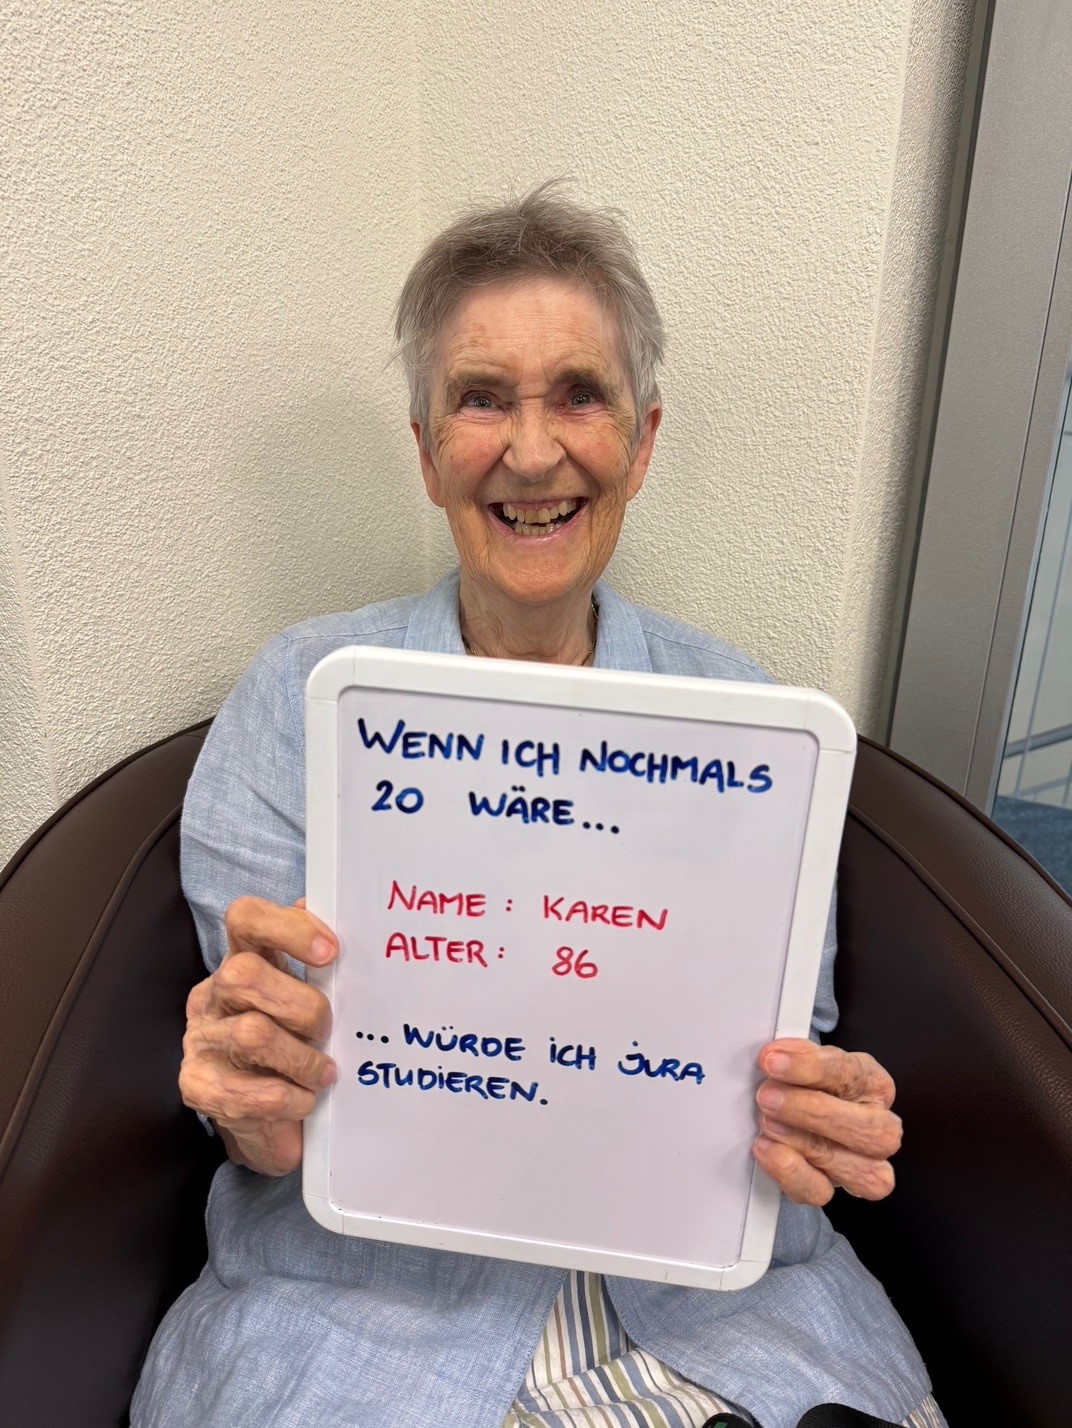 WENN ICH NOCHMALS
20 WÄRE...
NAME: KAREN
ALTER: 86
... WÜRDE ICH JURA
STUDIEREN.